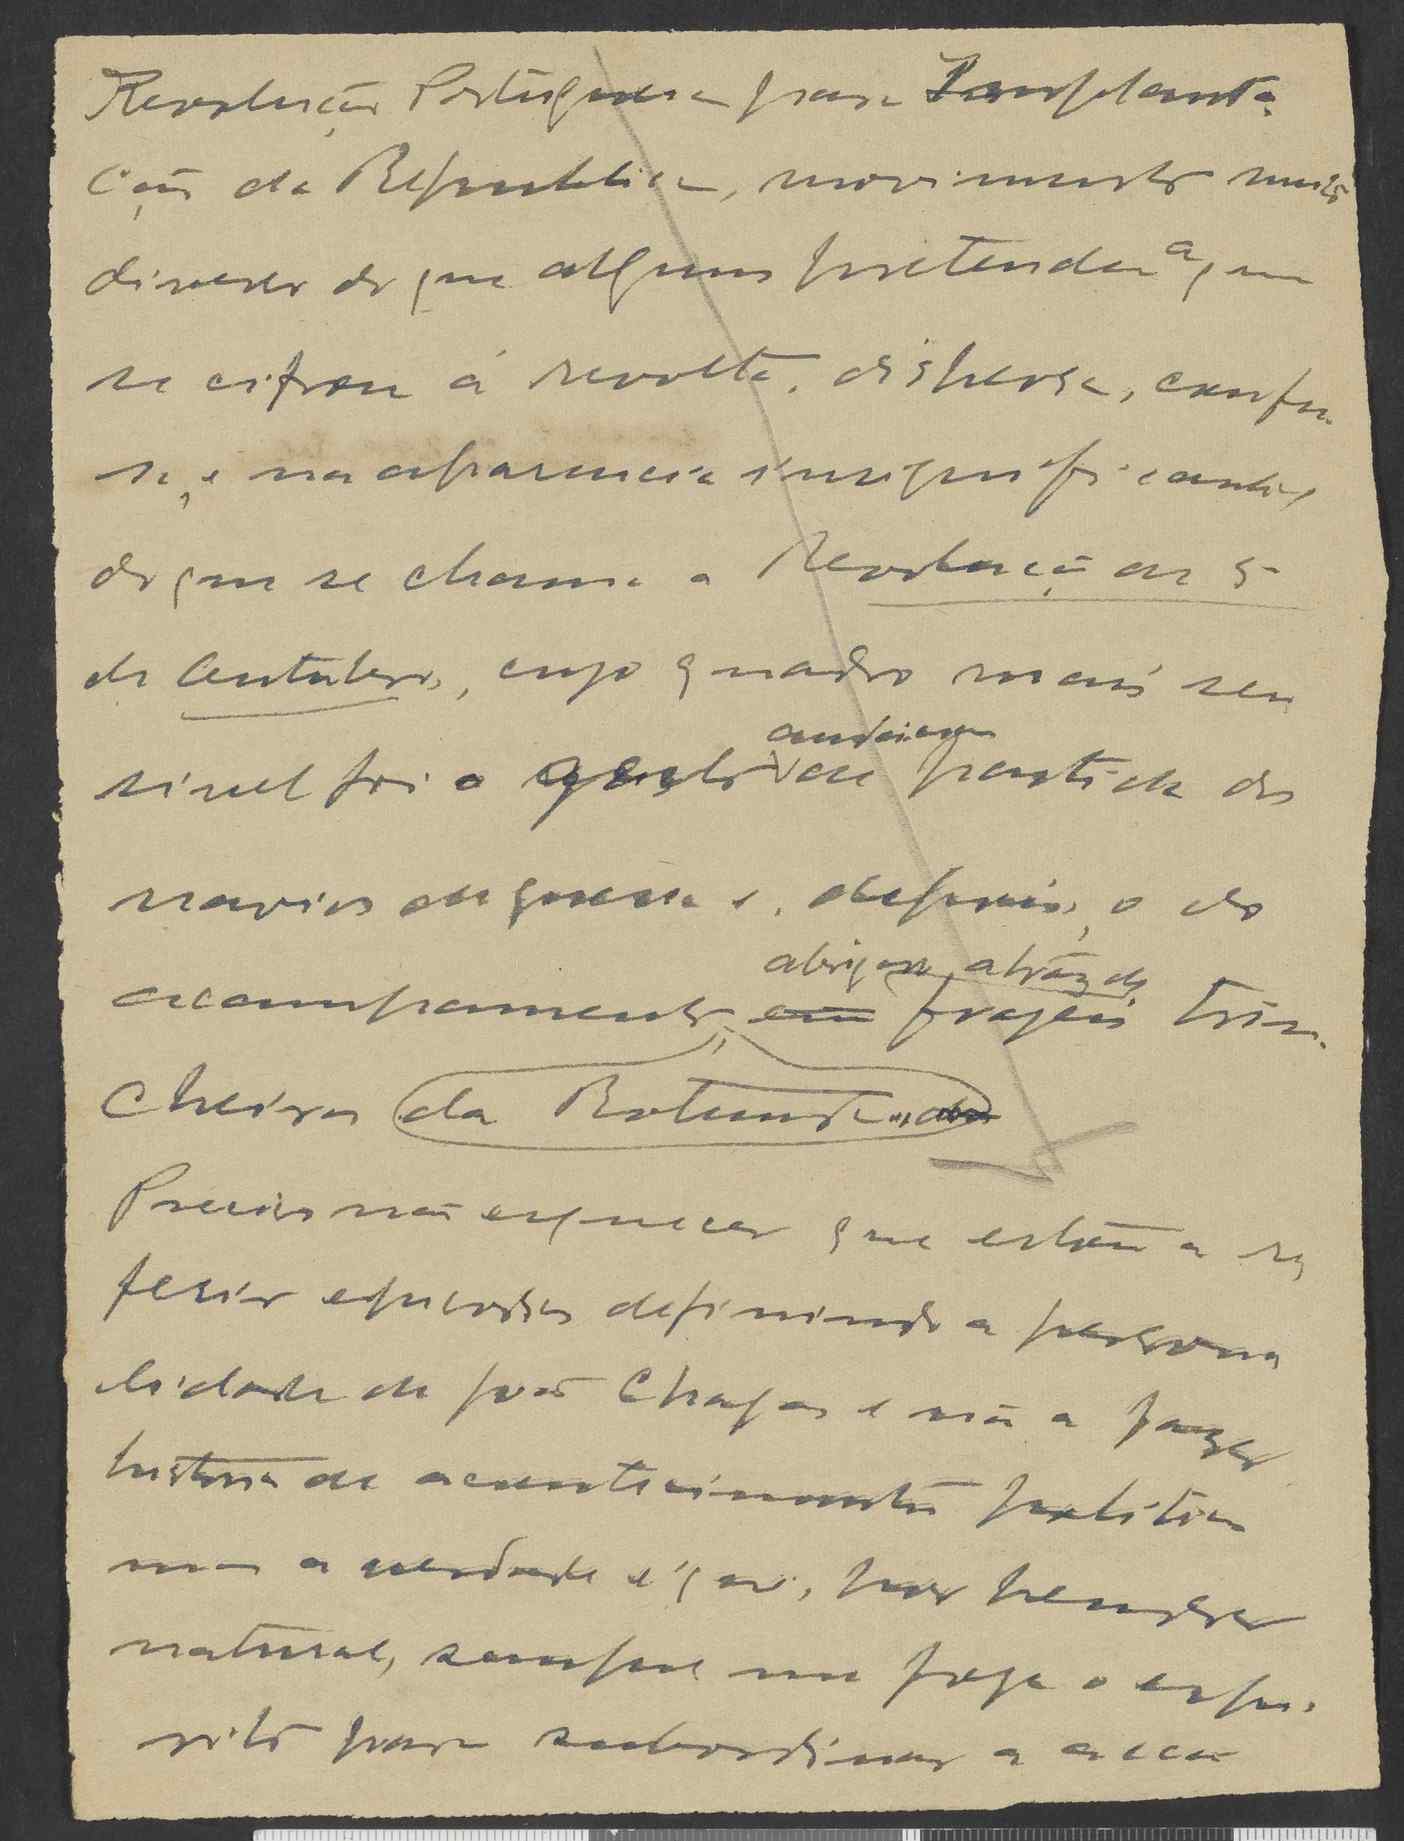 Revolução Portuguesa para Implanta-
ção da Republica, movimento muito
diverso do que alguns pretendem, que
se cifrou á revolta, dispersa, confu-
sa, e na aparencia insignificante,
do que se chama a Revolução de 5
de Outubro, cujo quadro mais sen
sivel foi o gesto audacioso de partida dos
navios de guerra e, depois, o do
acampamento em abrigar-se atráz de frageis trin-
cheiras da Rotunda
Preciso não esquecer que estou a re
ferir episodios definindo a persona
lidade de João Chagas e não a fazer
historia de acontecimentos politicos
mas a verdade é que, por pendor
natural, sempre me foge o espi-
rito para subordinar a acção